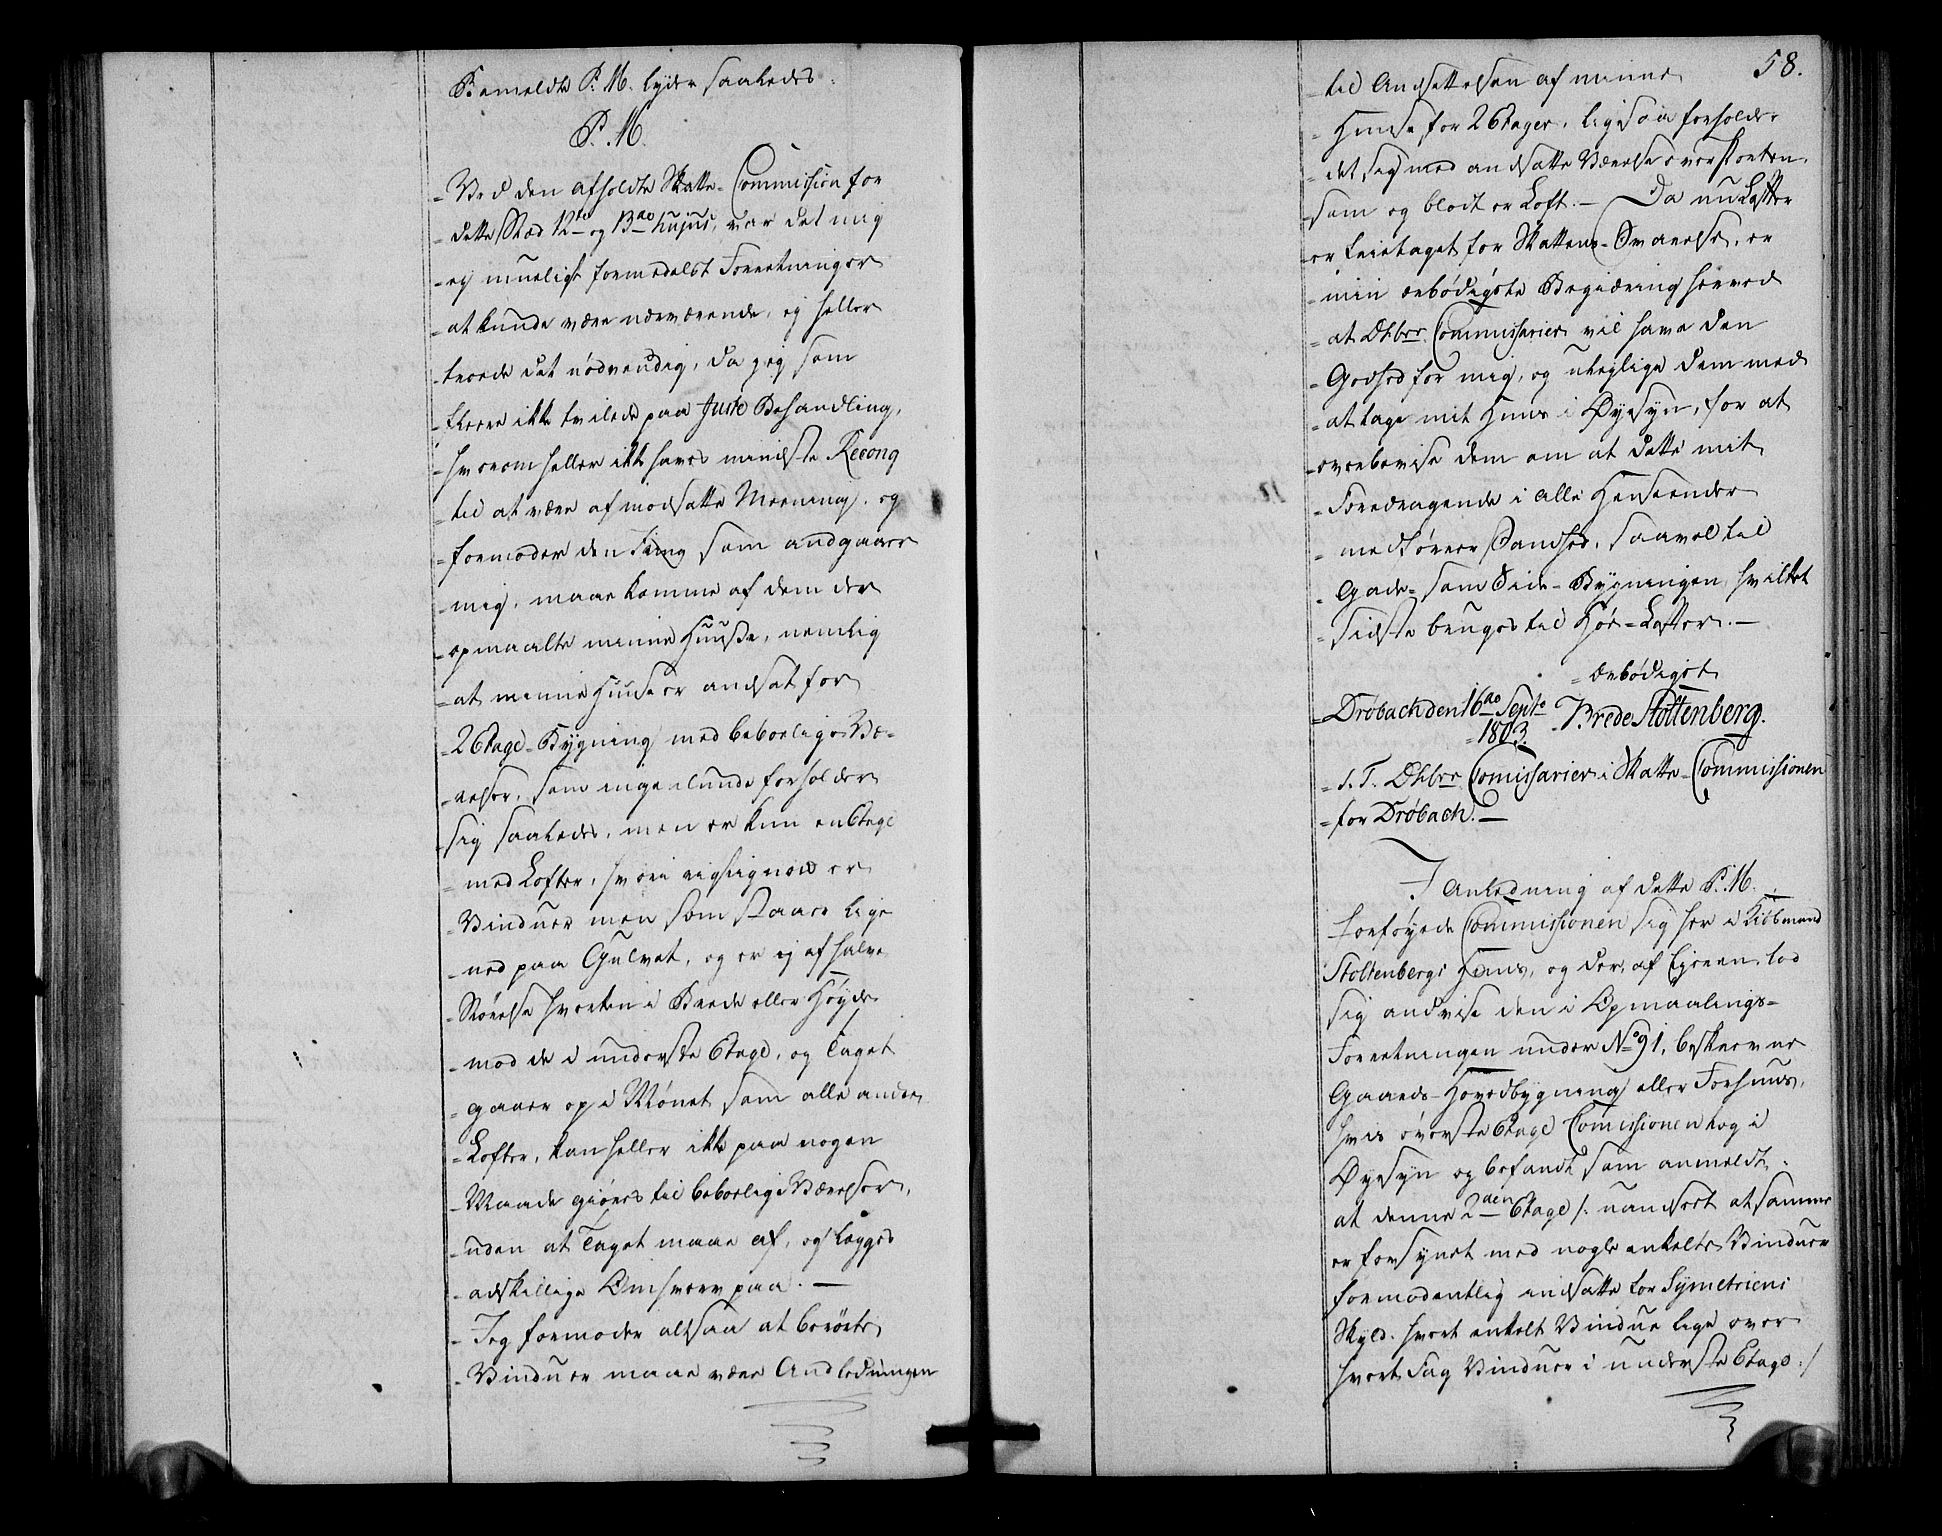 Bemeldte P. M. lyder saaledes:
P. M.
- Ved den afholdte Skatte-Commission for
- dette Stæd 12te og 13de hujus, var det mig
- ej mueligt formedelst Forretninger
- at kunde være nærværende, ej heller
- troede det nødvendig, da jeg som
- fleere ikke tvilede paa Juste Behandling,
- hvorom heller ikke haves mindste
- til at være af modsatte Meening, og
- formoder den Ting som andgaaer
- mig, maae komme af dem der
- opmaalte mine Huuse, nemlig
- at mine Huuse er andsat for
- 2 Etage-Bygning med beboelige Væ-
- relser, som ingenlunde forholder
- sig saaledes, men er kun en Etage
- med Lofter, hvori rigtignok er
- Vinduer men som staaer lige
- ned paa Gulvet, og er ej af halve
- Størelse hverken i Brede eller Høyde
- mod de i underste Etage, og Taget
- gaaer op i Mønet som alle andre
- Lofter, kan heller ikke paa nogen
- Maade giøres til beboelige Værelser,
- uden at Taget maae af, og legges
- adskillige Omhverv paa. —
- Jeg formoder altsaa at berørte
- Vinduer maae være Andledningen
58.
- til Andsettelsen af mine
- Huuse for 2 Etager, ligesaa forholder
- det sig med andsatte Værelse over Porten,
- som og blot er Loft. — Da nu Lofter
- er frietaget for Skattens Svarelse, er
- min ærbødigste Begiæring herved
- at Dhhrr Commissarier vil have den
- Godhed for mig, og uleylige dem med
- at tage mit Huus i Øyesyn, for at
- overbevise dem om at dette mit
- Foredragende i alle Henseender
- medfører Sandhed, saavel til
- Gade- som Side-Bygningen, hvilket
- sidste bruges til Høe-Lofter. —
- ærbødigst
- Drøbach den 16de Septe
- 1803.
- Brede Stoltenberg.
- S. T. Dhhrr Comissarier i Skatte-Commissionen
- for Drøbach. —
I Anledning af dette P. M.
forføyede Commissionen sig her i Kiøbmand
Stoltenbergs Huus, og der, af Ejeren lod
sig andvise den i Opmaalings-
Forretningen under No 91, beskrevne
Gaards Hovedbygning eller Forhuus,
hvis øverste Etage Comissionen tog i
Øyesyn og befandt som anmeldt,
at denne 2den Etage /: uandseet at samme
er forsynet med nogle enkelte Vinduer
formodentlig indsatte for Symetriens
Skyld, hvert enkelt Vindue lige over
hvert Fag Vinduer i underste Etage :/